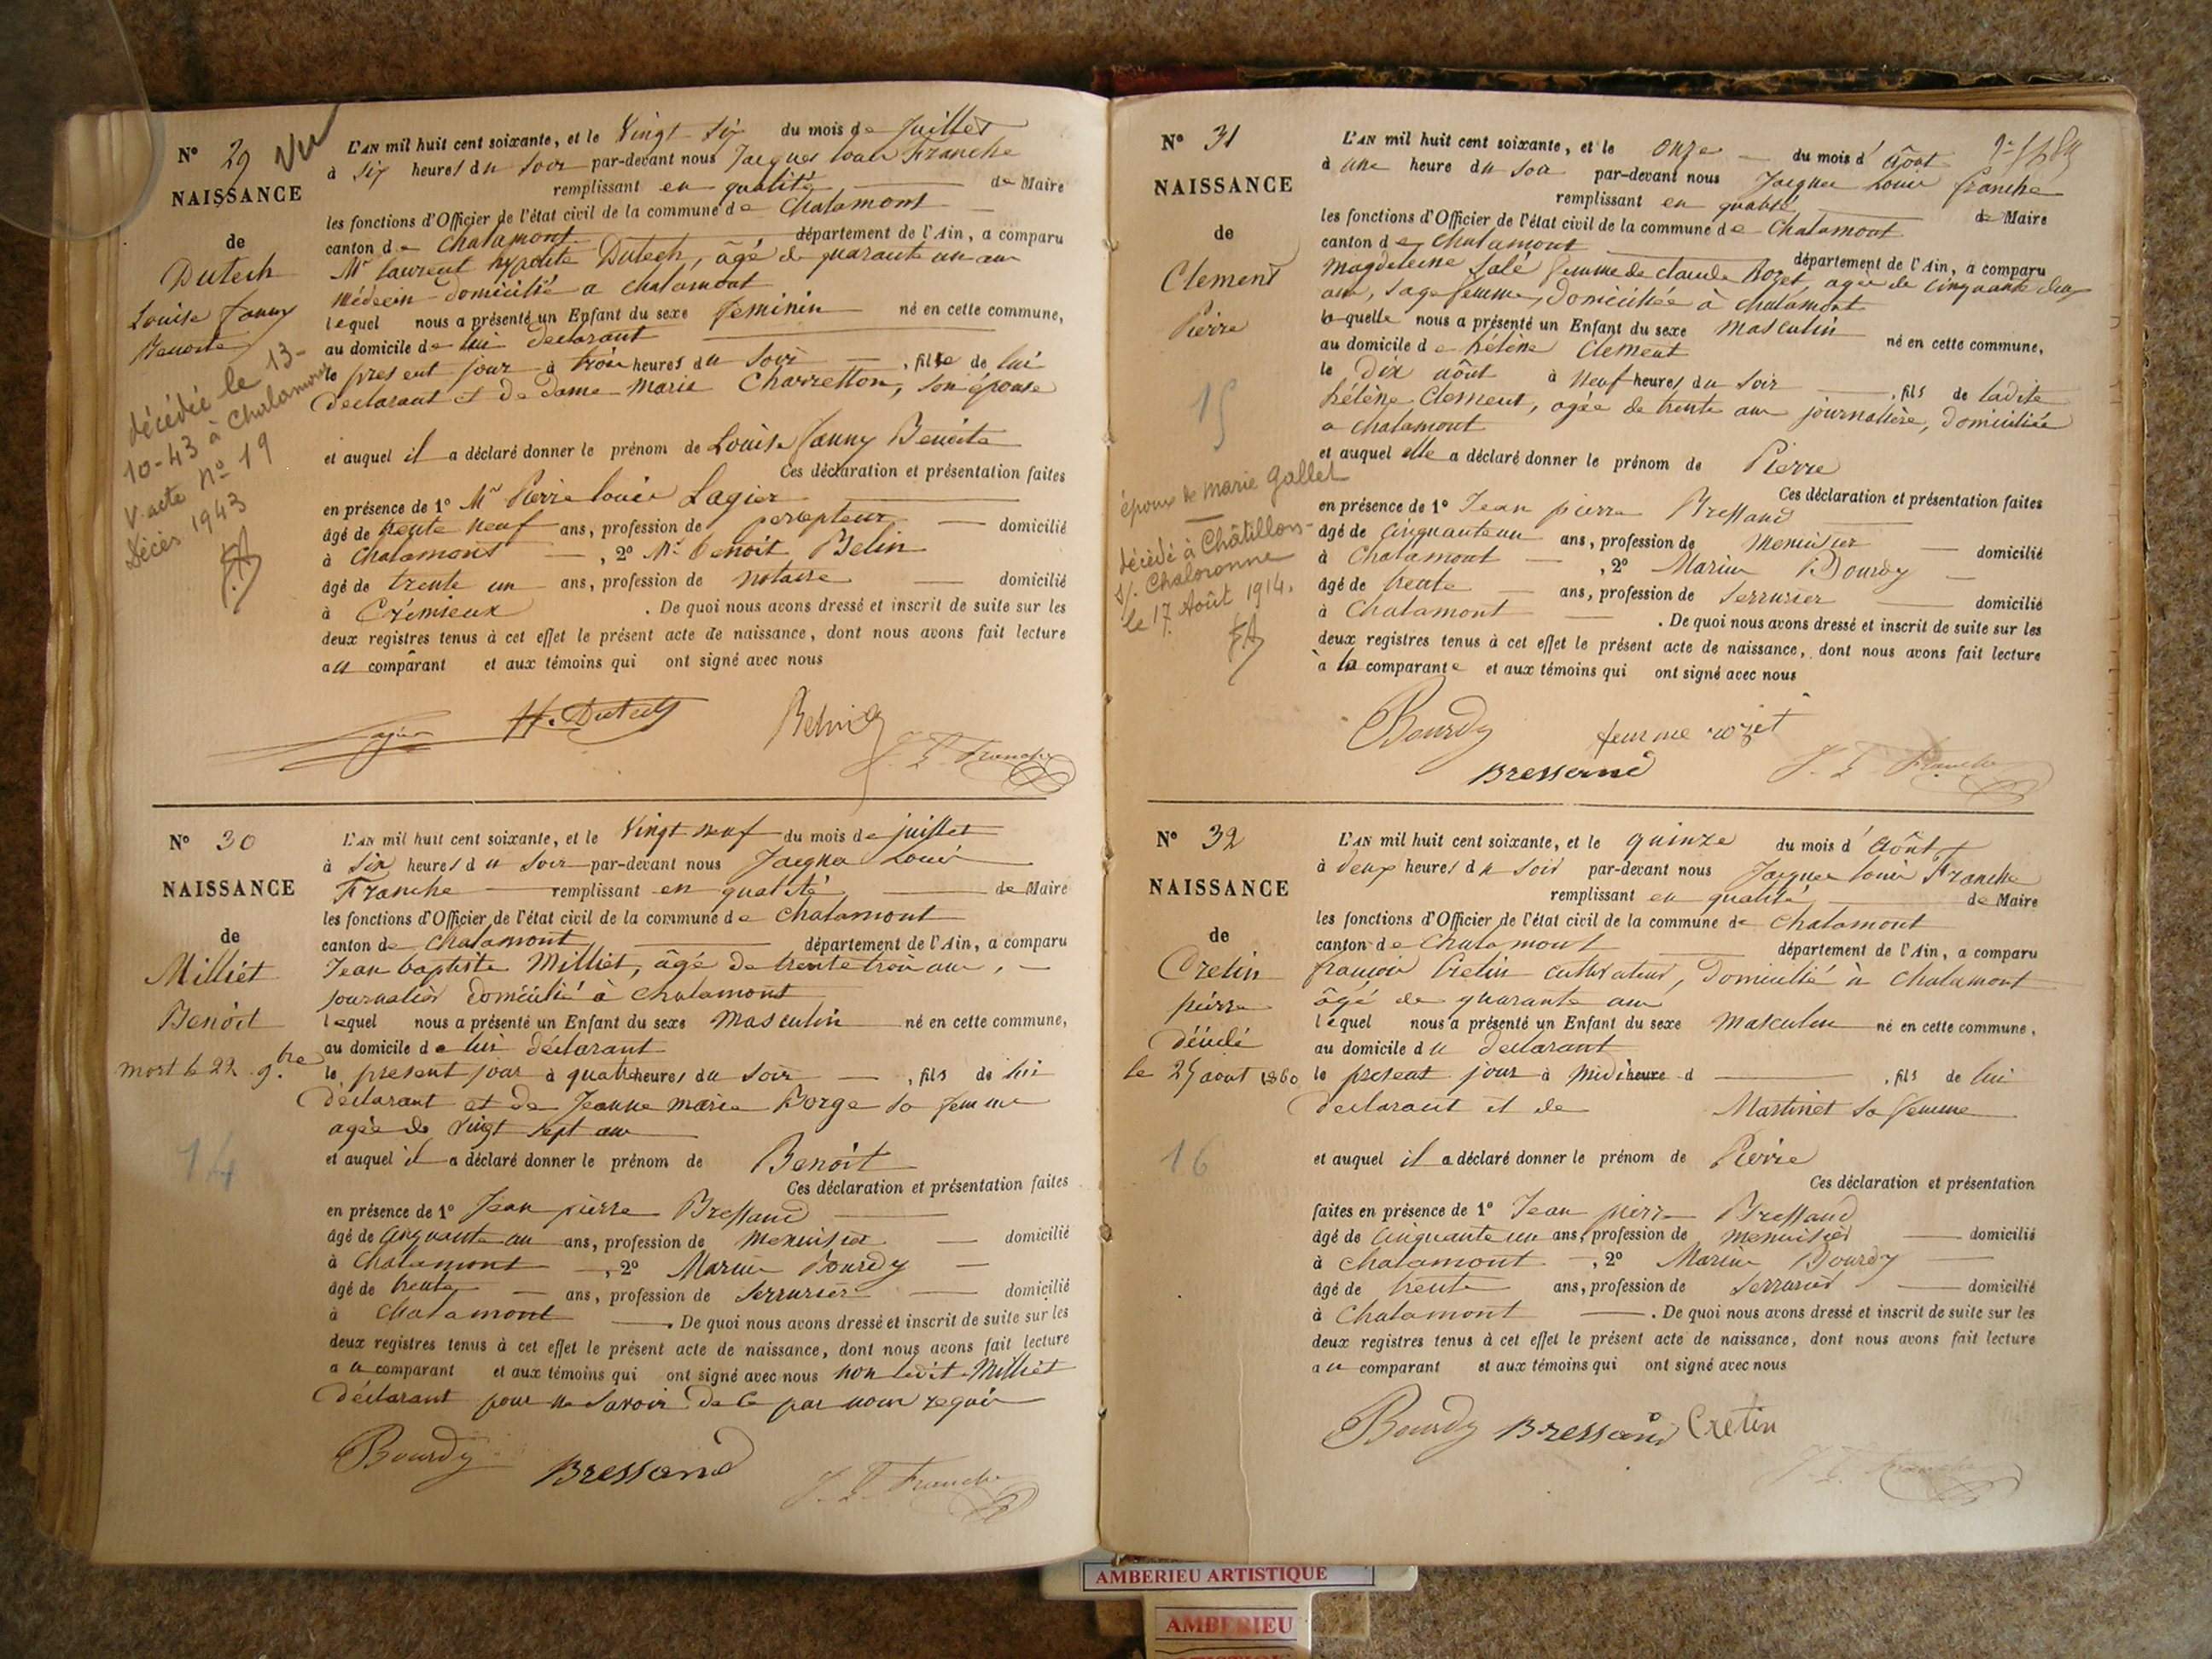 N° 29 Vu
NAISSANCE
de
Dutech
Louise fanny
Benoite
décédée le 13-
10-43 à Chalamont
V. acte N° 19
Décès 1943
L'AN mil huit cent soixante, et le Vingt Six du mois de juillet
à Six heures du Soir par-devant nous Jacques Louis Franche
remplissant en qualité de Maire
les fonctions d'Officier de l'état civil de la commune de Chalamont
canton de Chalamont département de l'Ain, a comparu
Mr laurent hypolite Dutech, âgé de quarante un ans
Médecin domicilié a chalamont
lequel nous a présenté un Enfant du sexe feminin né en cette commune,
au domicile de lui declarant
le present jour à trois heures du Soir, fille de lui
declarant et de dame Marie Charretton, son épouse
et auquel il a déclaré donner le prénom de Louise fanny Benoite
Ces déclaration et présentation faites
en présence de 1° Mr Pierre louis Lagier
âgé de trente neuf ans, profession de percepteur domicilié
à Chalamont, 2° Mr benoit Belin
âgé de trente un ans, profession de notaire domicilié
à Crémieux. De quoi nous avons dressé et inscrit de suite sur les
deux registres tenus à cet effet le présent acte de naissance, dont nous avons fait lecture
au comparant et aux témoins qui ont signé avec nous
Lagier H. Dutech Belin J. L. Franche
N° 30
NAISSANCE
de
Milliet
Benoit
mort le 22 9.bre
14
L'AN mil huit cent soixante, et le Vingt neuf du mois de juillet
à Six heures du Soir par-devant nous Jacques Louis
Franche remplissant en qualité de Maire
les fonctions d'Officier de l'état civil de la commune de Chalamont
canton de Chalamont département de l'Ain, a comparu
Jean baptiste Milliet, âgé de trente trois ans,
journalier domicilié à Chalamont
lequel nous a présenté un Enfant du sexe Masculin né en cette commune,
au domicile de lui déclarant
le present jour à quatre heures du Soir, fils de lui
déclarant et de Jeanne marie Borge sa femme
agée de vingt sept ans
et auquel il a déclaré donner le prénom de Benoit
Ces déclaration et présentation faites
en présence de 1° Jean pierre Bressand
âgé de cinquante un ans, profession de menuisier domicilié
à Chalamont, 2° Marius Bourdy
âgé de trente ans, profession de Serrurier domicilié
à Chalamont. De quoi nous avons dressé et inscrit de suite sur les
deux registres tenus à cet effet le présent acte de naissance, dont nous avons fait lecture
au comparant et aux témoins qui ont signé avec nous non ledit Milliet
déclarant pour ne Savoir de ce par nous requis
Bourdy Bressand J. L. Franche
N° 31
NAISSANCE
de
Clement
Pierre
15
époux de Marie Gallet
décédé à Châtillon-
s/. Chalaronne
le 17 Août 1914.
L'AN mil huit cent soixante, et le onze du mois d'Août
à une heure du Soir par-devant nous Jacques Louis franche
remplissant en qualité de Maire
les fonctions d'Officier de l'état civil de la commune de Chalamont
canton de Chalamont département de l'Ain, a comparu
Magdeleine Salé femme de claude Rozet, agée de cinquante deux
ans, sage femme, domiciliée à chalamont
laquelle nous a présenté un Enfant du sexe Masculin né en cette commune,
au domicile de hélène Clement
le Dix août à Neuf heures du Soir, fils de ladite
hélène Clement, agée de trente ans journalière, domiciliée
a chalamont
et auquel elle a déclaré donner le prénom de Pierre
Ces déclaration et présentation faites
en présence de 1° Jean pierre Bressand
âgé de cinquante un ans, profession de Menuisier domicilié
à Chalamont, 2° Marius Bourdy
âgé de trente ans, profession de Serrurier domicilié
à Chalamont. De quoi nous avons dressé et inscrit de suite sur les
deux registres tenus à cet effet le présent acte de naissance, dont nous avons fait lecture
à la comparante et aux témoins qui ont signé avec nous
Bourdy femme rozet
Bressand J. L. Franche
N° 32
NAISSANCE
de
Cretin
pierre
décédé
le 25 aout 1860
16
L'AN mil huit cent soixante, et le quinze du mois d'Août
à deux heures du soir par-devant nous Jacques louis Franche
remplissant en qualité de Maire
les fonctions d'Officier de l'état civil de la commune de Chalamont
canton de Chalamont département de l'Ain, a comparu
françois Cretin cultivateur, domicilié à Chalamont
âgé de quarante ans
lequel nous a présenté un Enfant du sexe Masculin né en cette commune,
au domicile du declarant
le present jour à Midi heure d, fils de lui
declarant et de Martinet sa femme
et auquel il a déclaré donner le prénom de Pierre
Ces déclaration et présentation
faites en présence de 1° Jean pierre Bressand
âgé de cinquante un ans, profession de menuisier domicilié
à Chalamont, 2° Marius Bourdy
âgé de trente ans, profession de Serrurier domicilié
à Chalamont. De quoi nous avons dressé et inscrit de suite sur les
deux registres tenus à cet effet le présent acte de naissance, dont nous avons fait lecture
au comparant et aux témoins qui ont signé avec nous
Bourdy Bressand Cretin
J. L. Franche
AMBERIEU ARTISTIQUE
AMBERIEU